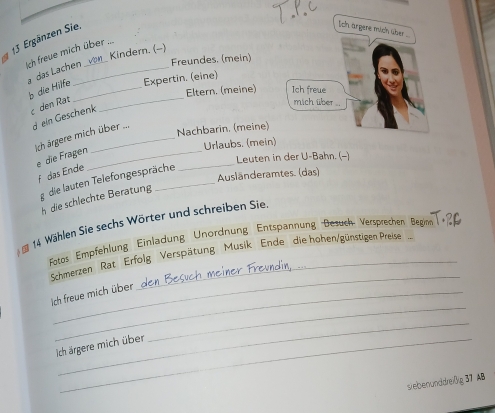 T.P.C
13 Ergänzen Sie.
Ich freue mich über ...
a das Lachen von Kindern. (–)
b die Hilfe ________ Freundes. (mein)
c den Rat ________ Expertin. (eine)
d ein Geschenk ________ Eltern. (meine)
Ich ärgere mich über ...
e die Fragen ________ Nachbarin. (meine)
f das Ende ________ Urlaubs. (mein)
g die lauten Telefongespräche ________ Leuten in der U-Bahn. (–)
h die schlechte Beratung ________ Ausländeramtes. (das)
Ich ärgere mich über ...
Ich freue
mich über ...
14 Wählen Sie sechs Wörter und schreiben Sie.
T.P.C
Fotos Empfehlung Einladung Unordnung Entspannung Besuch Versprechen Beginn
Schmerzen Rat Erfolg Verspätung Musik Ende die hohen/günstigen Preise ...
Ich freue mich über den Besuch meiner Freundin, ...
Ich ärgere mich über
siebenunddreißig 37 AB